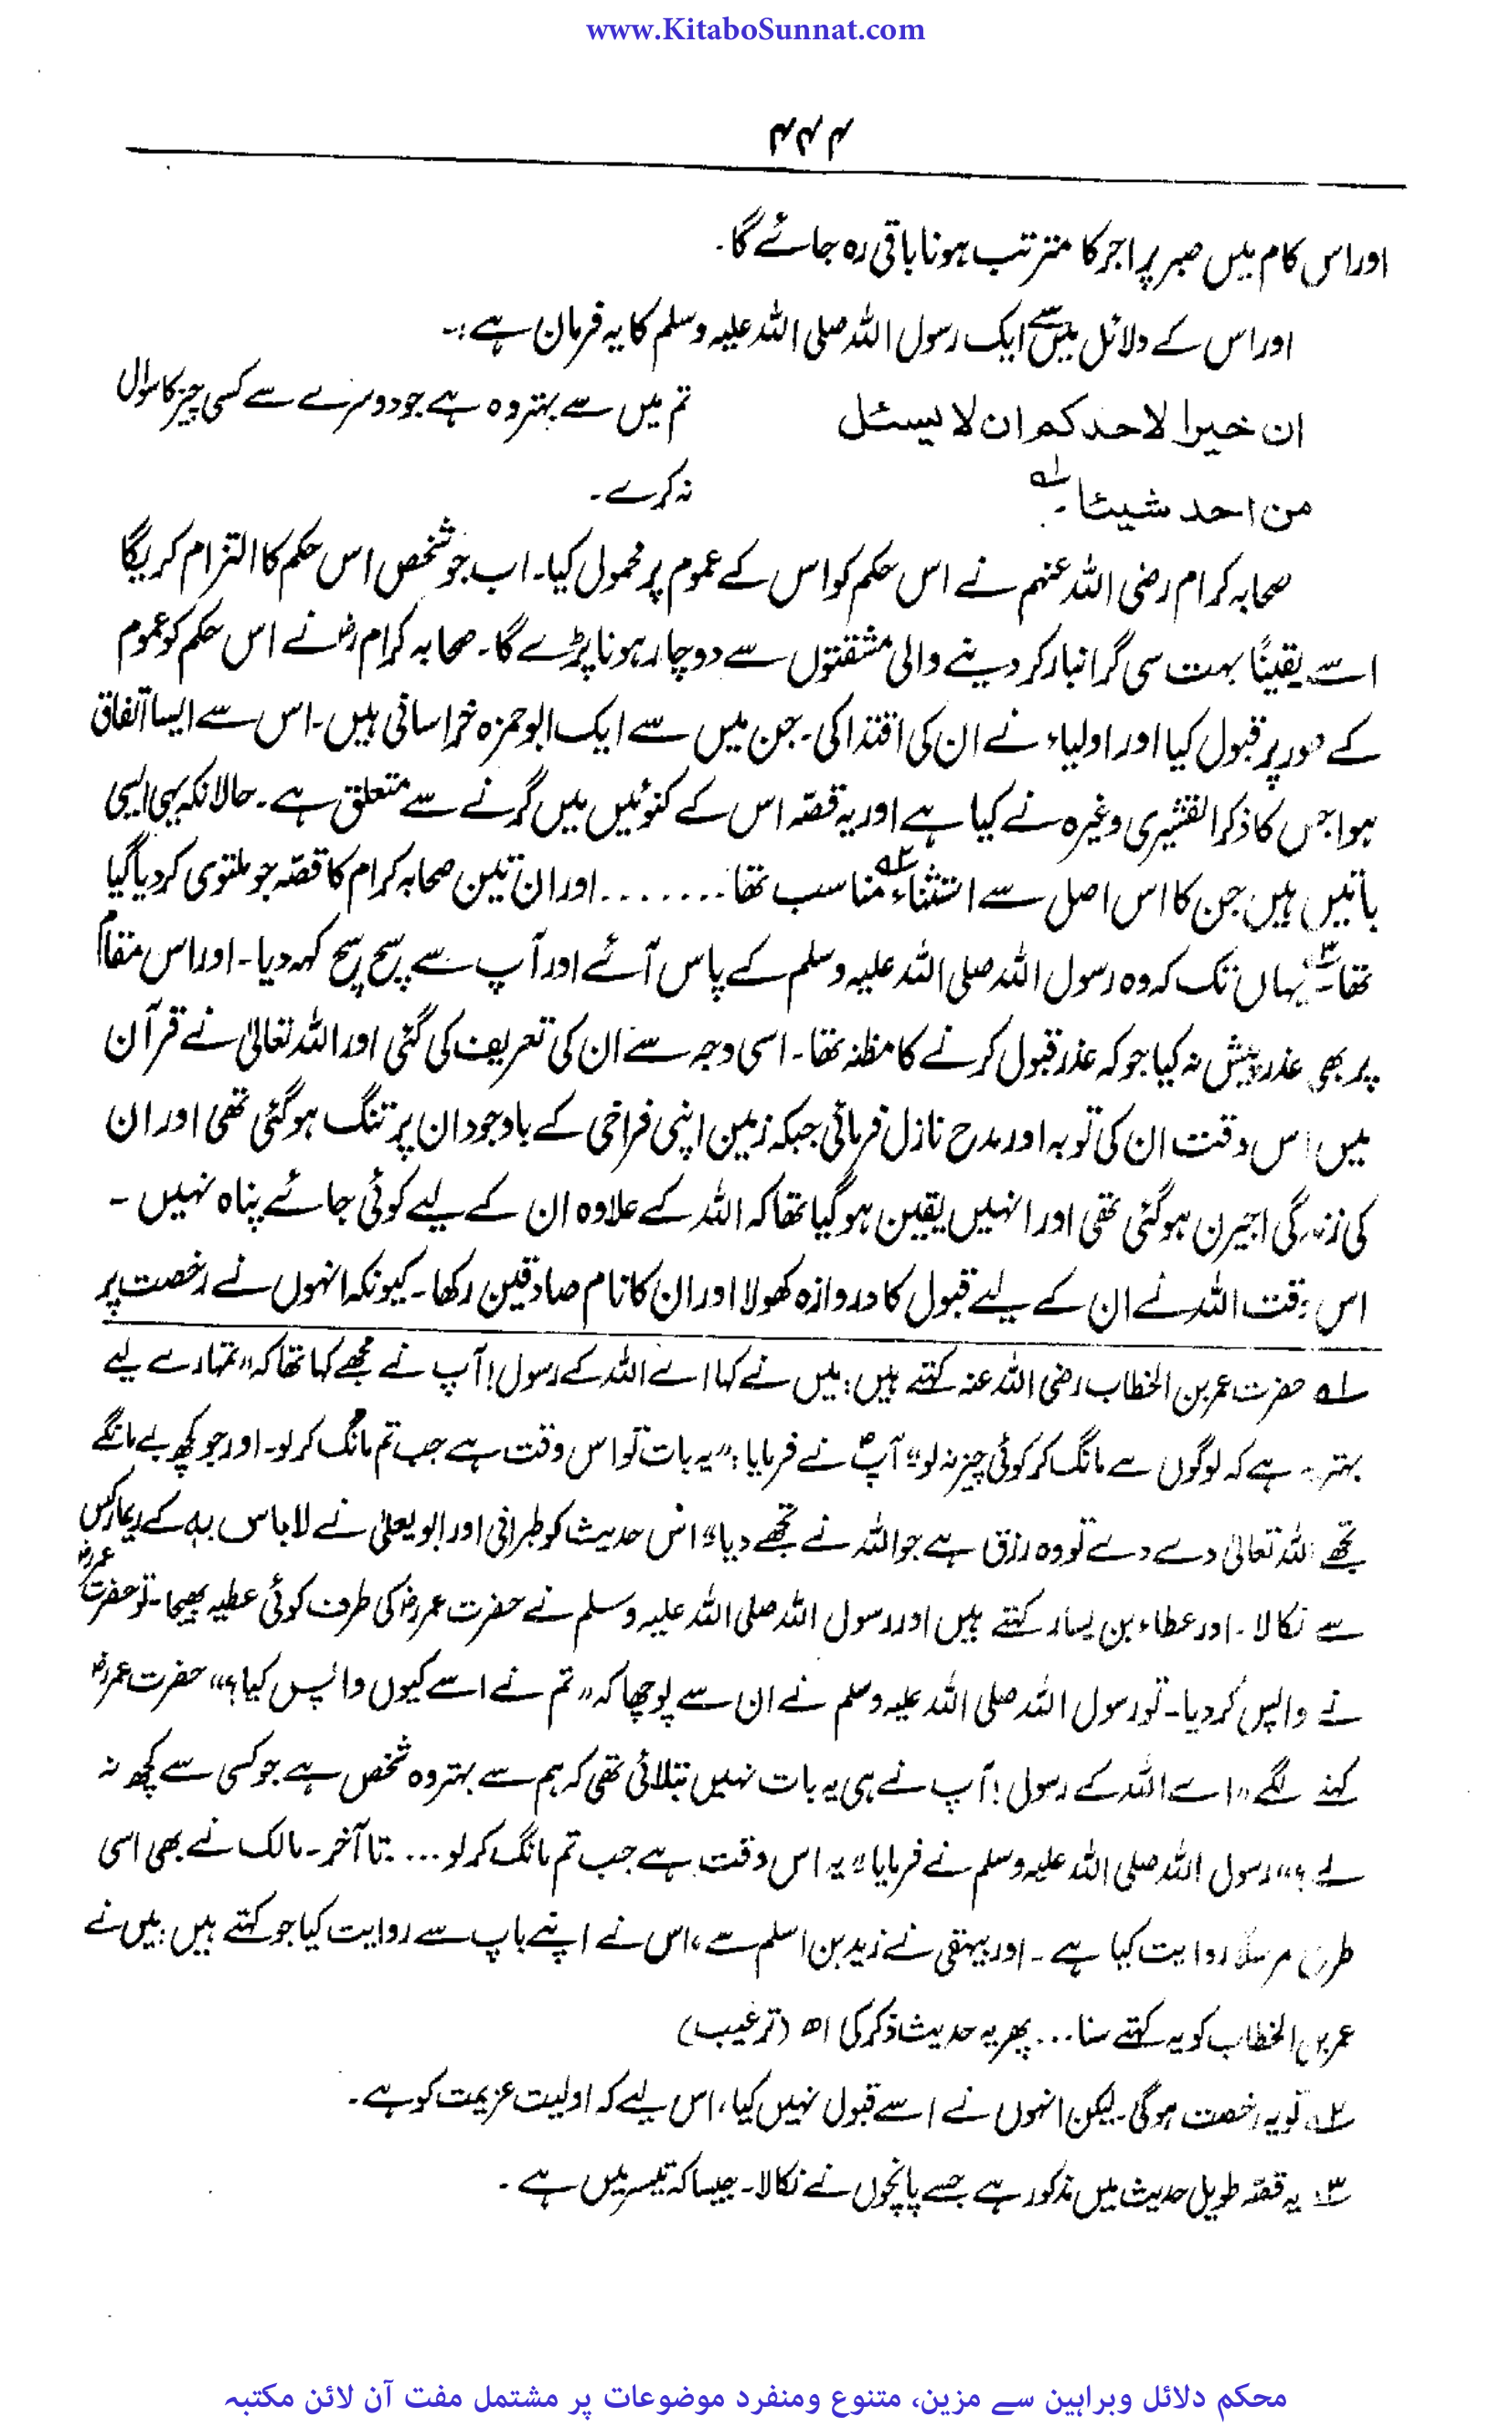 www.KitaboSunnat.com
۴۴۴
اور اس کام میں صبر پر اجر کا مترتب ہونا باقی رہ جائے گا۔
اور اس کے دلائل میں سے ایک رسول اللہ صلی اللہ علیہ وسلم کا یہ فرمان ہے :۔
ان خیرا لاحدکم ان لا یسئل
تم میں سے بہتر وہ ہے جو دوسرے سے کسی چیز کا سوال
من احد شیئا ۔ لہ
نہ کرے۔
صحابہ کرام رضی اللہ عنہم نے اس حکم کو اس کے عموم پر محمول کیا۔ اب جو شخص اس حکم کا التزام کریگا
اسے یقینًا بہت سی گرانبار کر دینے والی مشقتوں سے دوچار ہونا پڑے گا۔ صحابہ کرام رض نے اس حکم کو عموم
کے طور پر قبول کیا اور اولیاء نے ان کی اقتدا کی۔ جن میں سے ایک ابو حمزہ خراسانی ہیں۔ اس سے ایسا اتفاق
ہوا جس کا ذکر القشیری وغیرہ نے کیا ہے اور یہ قصہ اس کے کنوئیں میں گرنے سے متعلق ہے۔ حالانکہ یہی ایسی
باتیں ہیں جن کا اس اصل سے استثناء ۲ہ مناسب تھا ........ اور ان تین صحابہ کرام کا قصہ جو ملتوی کر دیا گیا
تھا ۳ہ یہاں تک کہ وہ رسول اللہ صلی اللہ علیہ وسلم کے پاس آئے اور آپ سے سچ سچ کہہ دیا۔ اور اس مقام
پر بھی عذر پیش نہ کیا جو کہ عذر قبول کرنے کا مظنہ تھا۔ اسی وجہ سے ان کی تعریف کی گئی اور اللہ تعالیٰ نے قرآن
میں اس وقت ان کی توبہ اور مدح نازل فرمائی جبکہ زمین اپنی فراخی کے باوجود ان پر تنگ ہوگئی تھی اور ان
کی زندگی اجیرن ہوگئی تھی اور انہیں یقین ہو گیا تھا کہ اللہ کے علاوہ ان کے لیے کوئی جائے پناہ نہیں ۔
اس وقت اللہ نے ان کے لیے قبول کا دروازہ کھولا اور ان کا نام صادقین رکھا۔ کیونکہ انہوں نے رخصت پر
لہ حضرت عمر بن الخطاب رضی اللہ عنہ کہتے ہیں: میں نے کہا اے اللہ کے رسول! آپ نے مجھے کہا تھا کہ "تمہارے لیے
بہتر یہ ہے کہ لوگوں سے مانگ کر کوئی چیز نہ لو" آپؐ نے فرمایا: "یہ بات تو اس وقت ہے جب تم مانگ کر لو۔ اور جو کچھ بے مانگے
تجھے اللہ تعالیٰ دے دے تو وہ رزق ہے جو اللہ نے تجھے دیا" اس حدیث کو طبرانی اور ابو یعلیٰ نے لا باس بہ کے ریمارکس
سے نکالا ۔ اور عطاء بن یسار کہتے ہیں اور رسول اللہ صلی اللہ علیہ وسلم نے حضرت عمر رض کی طرف کوئی عطیہ بھیجا۔ تو حضرت عمر رض
نے واپس کر دیا۔ تو رسول اللہ صلی اللہ علیہ وسلم نے ان سے پوچھا کہ "تم نے اسے کیوں واپس کیا؟" حضرت عمر رض
کہنے لگے "اے اللہ کے رسول! آپ نے ہی یہ بات نہیں بتلائی تھی کہ ہم سے بہتر وہ شخص ہے جو کسی سے کچھ نہ
لے؟" رسول اللہ صلی اللہ علیہ وسلم نے فرمایا "یہ اس وقت ہے جب تم مانگ کر لو ... تا آخر۔ مالک نے بھی اسی
طرح مرسلاً روایت کیا ہے ۔ اور بیہقی نے زید بن اسلم سے، اس نے اپنے باپ سے روایت کیا جو کہتے ہیں: میں نے
عمر بن الخطاب کو یہ کہتے سنا... پھر یہ حدیث ذکر کی اھ (ترغیب)
۲ہ تو یہ رخصت ہوگی۔ لیکن انہوں نے اسے قبول نہیں کیا، اس لیے کہ اولیت عزیمت کو ہے۔
۳ہ یہ قصہ طویل حدیث میں مذکور ہے جسے پانچوں نے نکالا۔ جیسا کہ تیسیر میں ہے ۔
محکم دلائل وبراہین سے مزین، متنوع ومنفرد موضوعات پر مشتمل مفت آن لائن مکتبہ